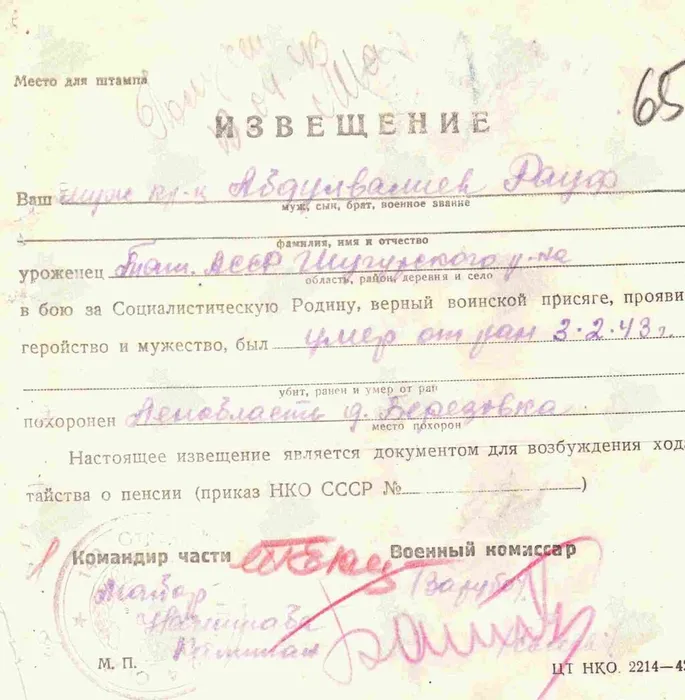 65
Место для штампа
ИЗВЕЩЕНИЕ
Ваш муж кр-ц Абдулвалиев Рауф
муж, сын, брат, военное звание
фамилия, имя и отчество
уроженец Тат. АССР Шугурского р-на
область, район, деревня и село
в бою за Социалистическую Родину, верный воинской присяге, прояви
геройство и мужество, был умер от ран 3.2.43 г.
убит, ранен и умер от ран
похоронен Ленобласть д. Березовка
место похорон
Настоящее извещение является документом для возбуждения хода
тайства о пенсии (приказ НКО СССР № )
Командир части Военный комиссар
Майор
М. П. ЦТ НКО. 2214—4